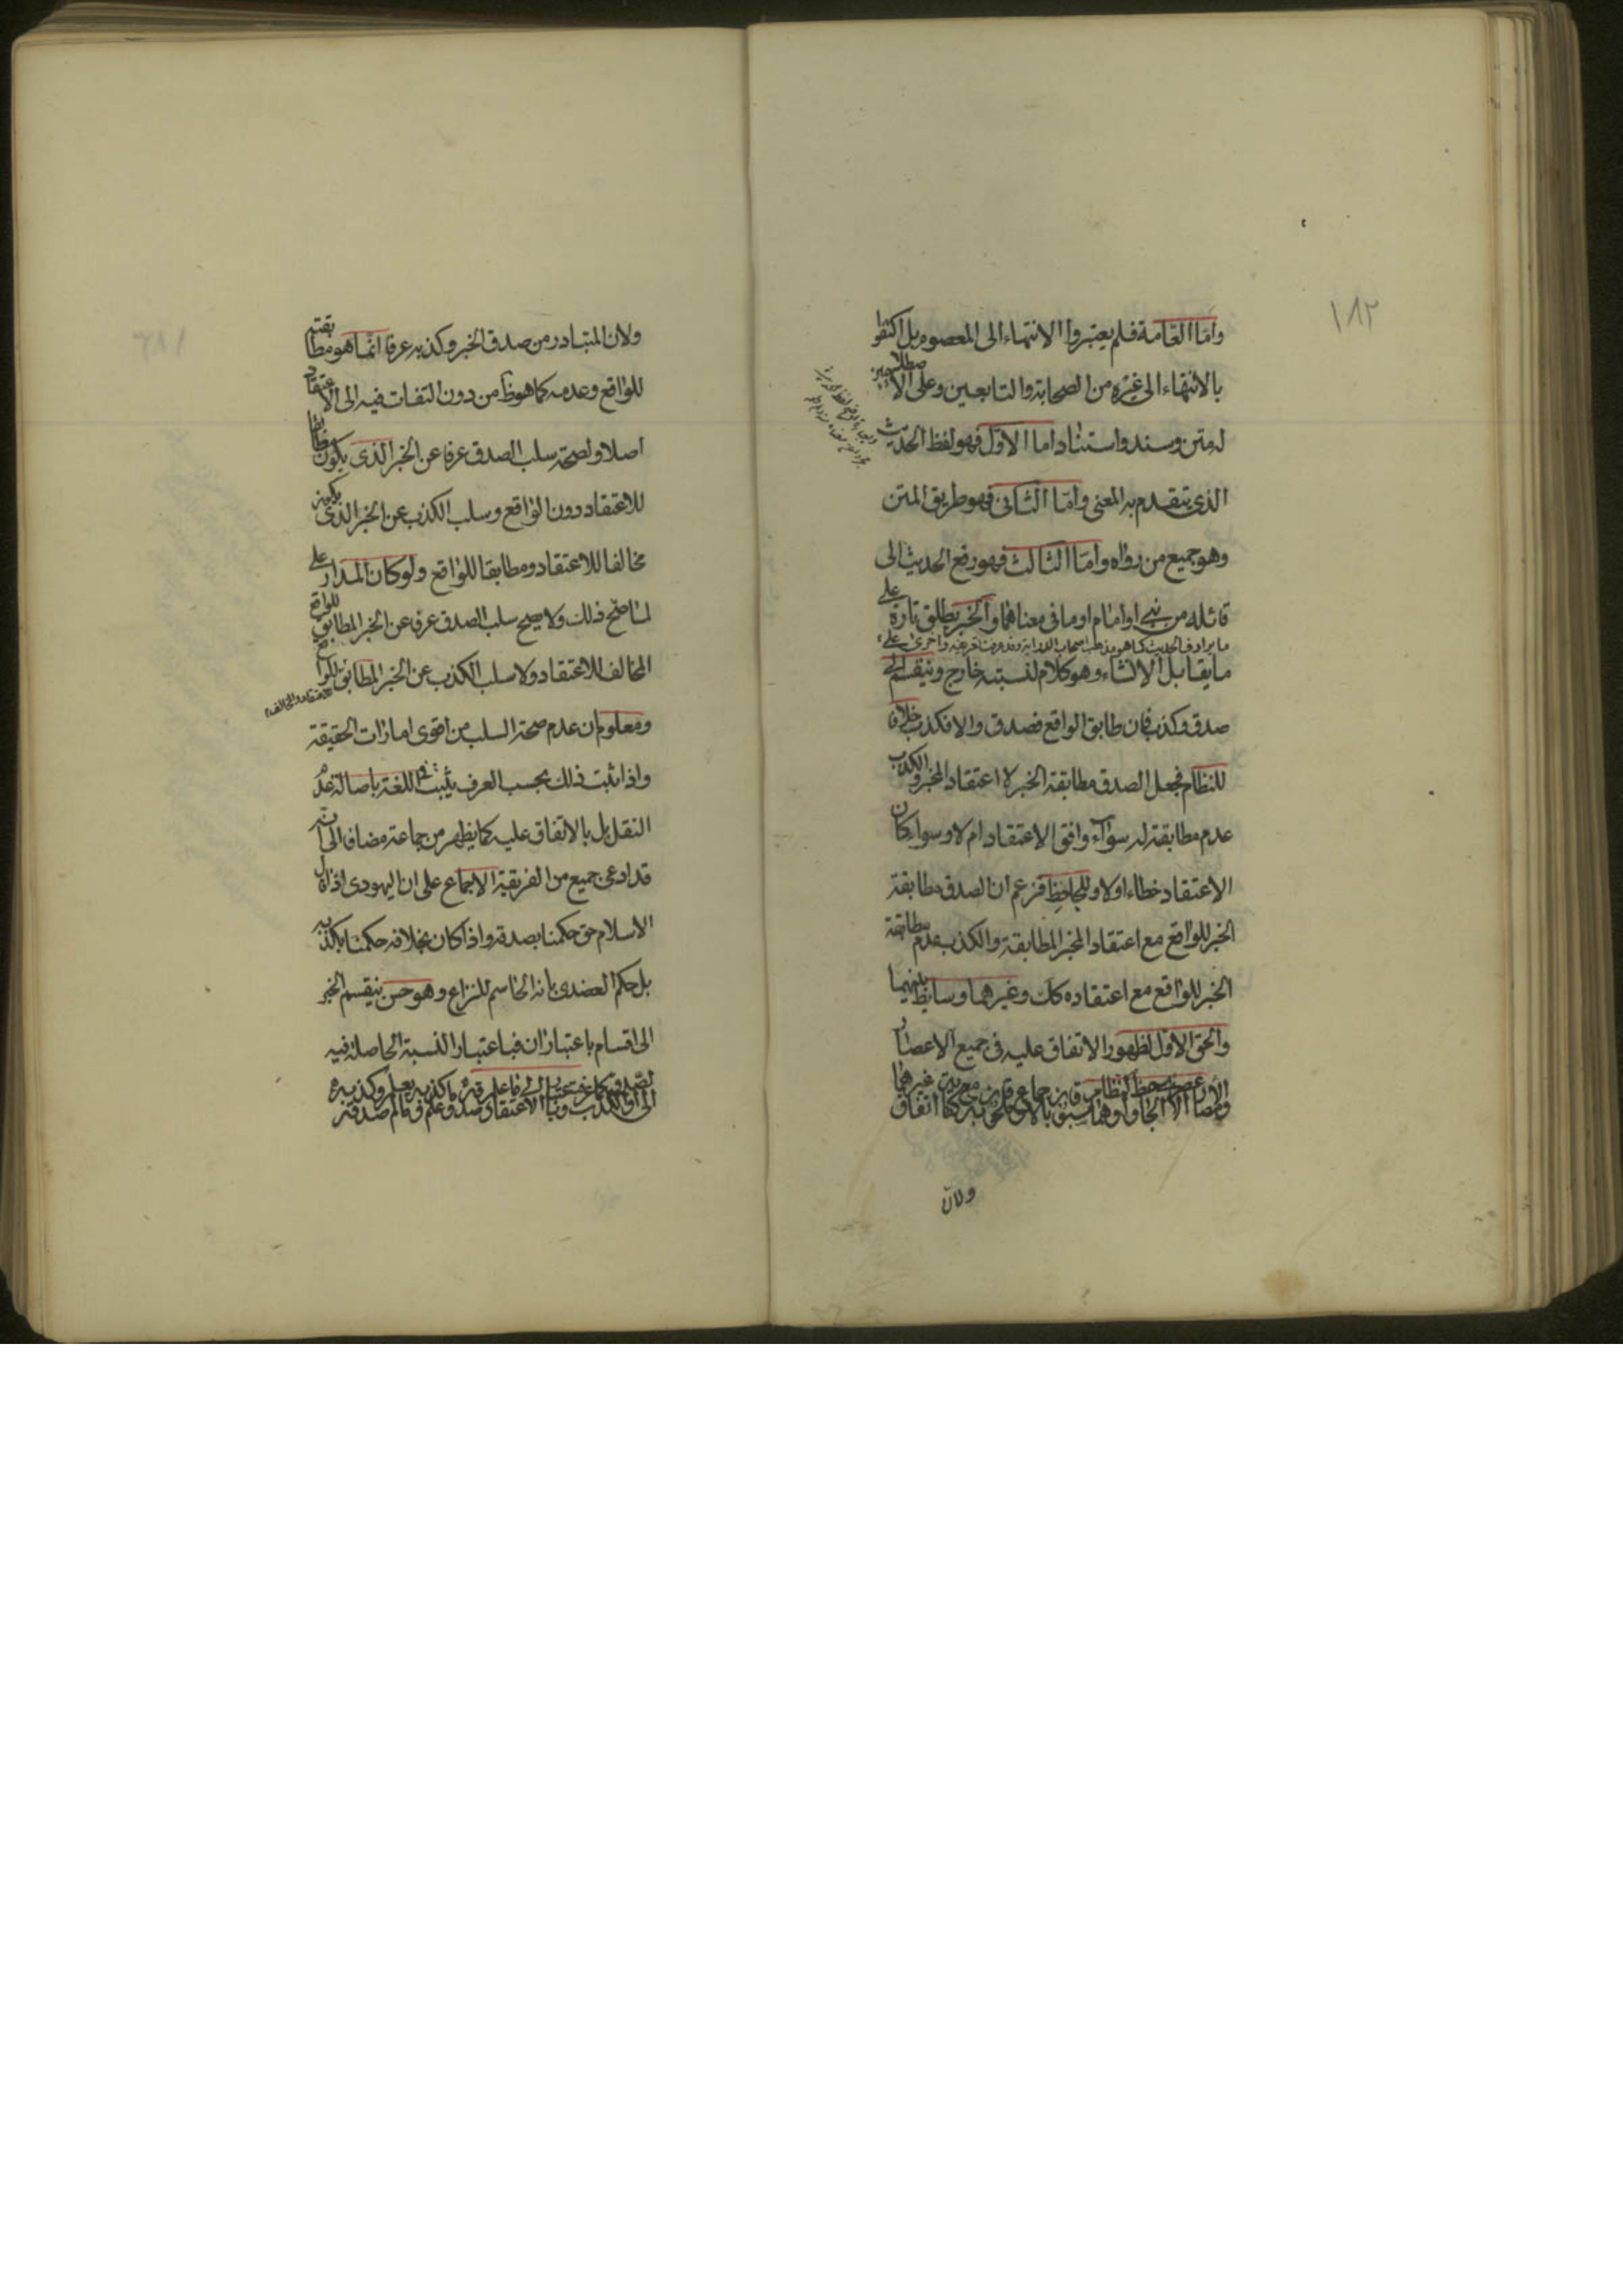 ١٨٢
واما العامة فلم يعتبروا الانتهاء الى المعصوم بل اكتفوا
بالانتهاء الى غيره من الصحابة والتابعين وعلى الاصطلاحين
له متن وسند واستناد اما الاول فهو لفظ الحديث
الذى يتقدم به المعنى واما الثانى فهو طريق المتن
وهو جميع من رواه واما الثالث فهو رفع الحديث الى
قائله من نبى او امام او ما فى معناهما والخبر يطلق تارة على
ما يرادف الحديث كما هو مذهب اصحاب الدراية وقد عرفت تعريفه واخرى على
ما يقابل الانشاء وهو كلام لنسبته خارج وينقسم الى
صدق وكذب فان طابق الواقع فصدق والا فكذب خلافا
للنظام فجعل الصدق مطابقة الخبر لاعتقاد المخبر والكذب
عدم مطابقته له سواء وافق الاعتقاد ام لا وسواء كان
الاعتقاد خطاء او لا وللجاحظ فزعم ان الصدق مطابقة
الخبر للواقع مع اعتقاد المخبر المطابقة والكذب عدم مطابقة
الخبر للواقع مع اعتقاده كك وغيرهما وسايط بينهما
والحق الاول لظهور الاتفاق عليه فى جميع الاعصار
والامصار الا
ولان
ولان المتبادر من صدق الخبر وكذبه عرفا انما هو مطابقته
للواقع وعدمه كما هو ظ من دون التفات فيه الى الاعتقاد
اصلا ولصحة سلب الصدق عرفا عن الخبر الذى يكون مطابقا
للاعتقاد دون الواقع وسلب الكذب عن الخبر الذى يكون
مخالفا للاعتقاد ومطابقا للواقع ولو كان المدار على
لما صح ذلك ولا يصح سلب الصدق عرفا عن الخبر المطابق للواقع
المخالف للاعتقاد ولا سلب الكذب عن الخبر المطابق
ومعلوم ان عدم صحة السلب من اقوى امارات الحقيقة
واذا ثبت ذلك بحسب العرف يثبت فى اللغة باصالة عدم
النقل بل بالاتفاق عليه كما يظهر من جماعة مضافا الى انه
قد ادعى جميع من الفريقين الاجماع على ان اليهودى اذا قال
الاسلام حق حكمنا بصدقه واذا كان بخلافه حكمنا بكذبه
بل حكم العضدى بانه الحاسم للنزاع وهو حسن ينقسم الخبر
الى اقسام باعتباران فباعتبار النسبة الحاصلة فيه